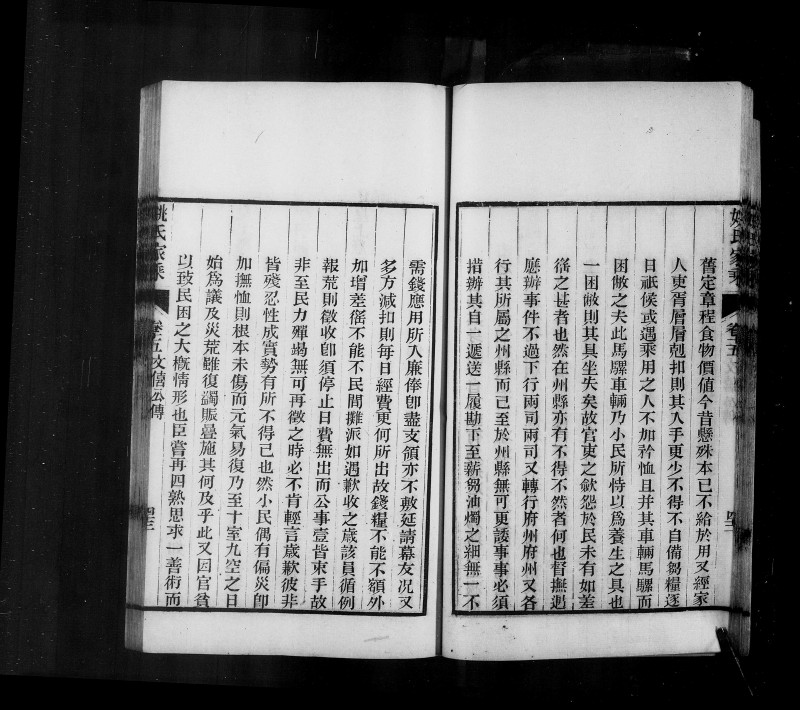 姚氏家乘
卷五
舊定章程食物價值今昔懸殊本已不給於用又經家
人吏胥層層剋扣則其入手更少不得不自備芻糧逐
日祇候或遇乘用之人不加矜恤且并其車輛馬騾而
困敝之夫此馬騾車輛乃小民所恃以爲養生之具也
一困敝則其具坐失矣故官吏之歛怨於民未有如差
徭之甚者也然在州縣亦有不得不然者何也督撫遇
應辦事件不過下行兩司兩司又轉行府州府州又各
行其所屬之州縣而已至於州縣無可更諉事事必須
措辦其自一遞送一履勘下至薪芻油燭之細無一不
需錢應用所入廉俸卽盡支領亦不敷延請幕友况又
多方減扣則每日經費更何所出故錢糧不能不額外
加增差徭不能不民間攤派如遇歉收之歲該員循例
報荒則徵收卽須停止日費無出而公事壹皆束手故
非至民力殫竭無可再徵之時必不肯輕言歲歉彼非
皆殘忍性成實勢有所不得已也然小民偶有偏災卽
加撫恤則根本未傷而元氣易復乃至十室九空之日
始爲議及災荒雖復蠲賑疊施其何及乎此又因官貧
以致民困之大槪情形也臣嘗再四熟思求一善術而
姚氏家乘
卷五 文僖公傳
四三